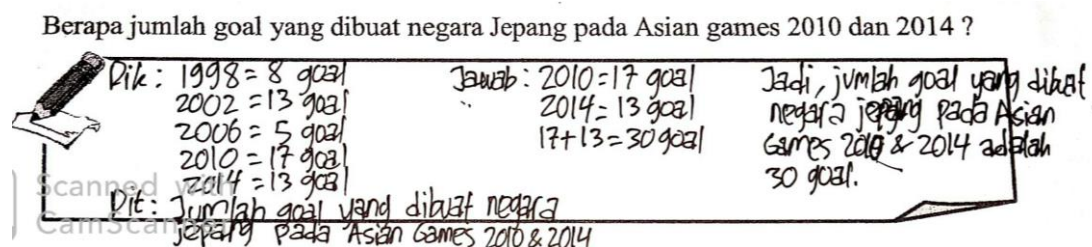 Berapa jumlah goal yang dibuat negara Jepang pada Asian games 2010 dan 2014 ?
Dik : 1998 = 8 goal
2002 = 13 goal
2006 = 5 goal
2010 = 17 goal
2014 = 13 goal
Dit : Jumlah goal yang dibuat negara
jepang pada Asian Games 2010 & 2014
Jawab : 2010 = 17 goal
2014 = 13 goal
17 + 13 = 30 goal
Jadi, jumlah goal yang dibuat
negara jepang pada Asian
Games 2010 & 2014 adalah
30 goal.
Scanned with
CamScanner